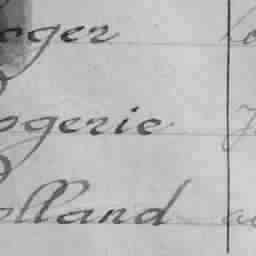 oger
ogerie
olland